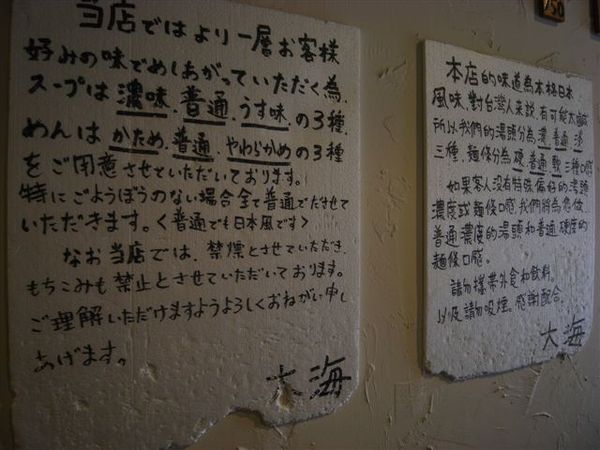 当店ではより一層お客様
好みの味でめしあがっていただく為、
スープは濃味、普通、うす味、の3種
めんはかため、普通、やわらかめの3種
をご用意させていただいております。
特にごようぼうのない場合全て普通でだせて
いただきます。<普通でも日本風です>
なお当店では、禁煙とさせていただき、
もちこみも禁止とさせていただいております。
ご理解いただけますようよろしくおねがい申し
あげます。
大海
本店的味道為本格日本
風味、對台灣人來說有可能太鹹
所以我們的湯頭分為濃 普通 淡
三種、麵條分為硬 普通 軟 三種口感
如果客人沒有特殊偏好的湯頭
濃度或麵條口感、我們將為您做
普通濃度的湯頭和普通硬度的
麵條口感。
請勿攜帶外食和飲料、
以及請勿吸煙。感謝配合
大海
150